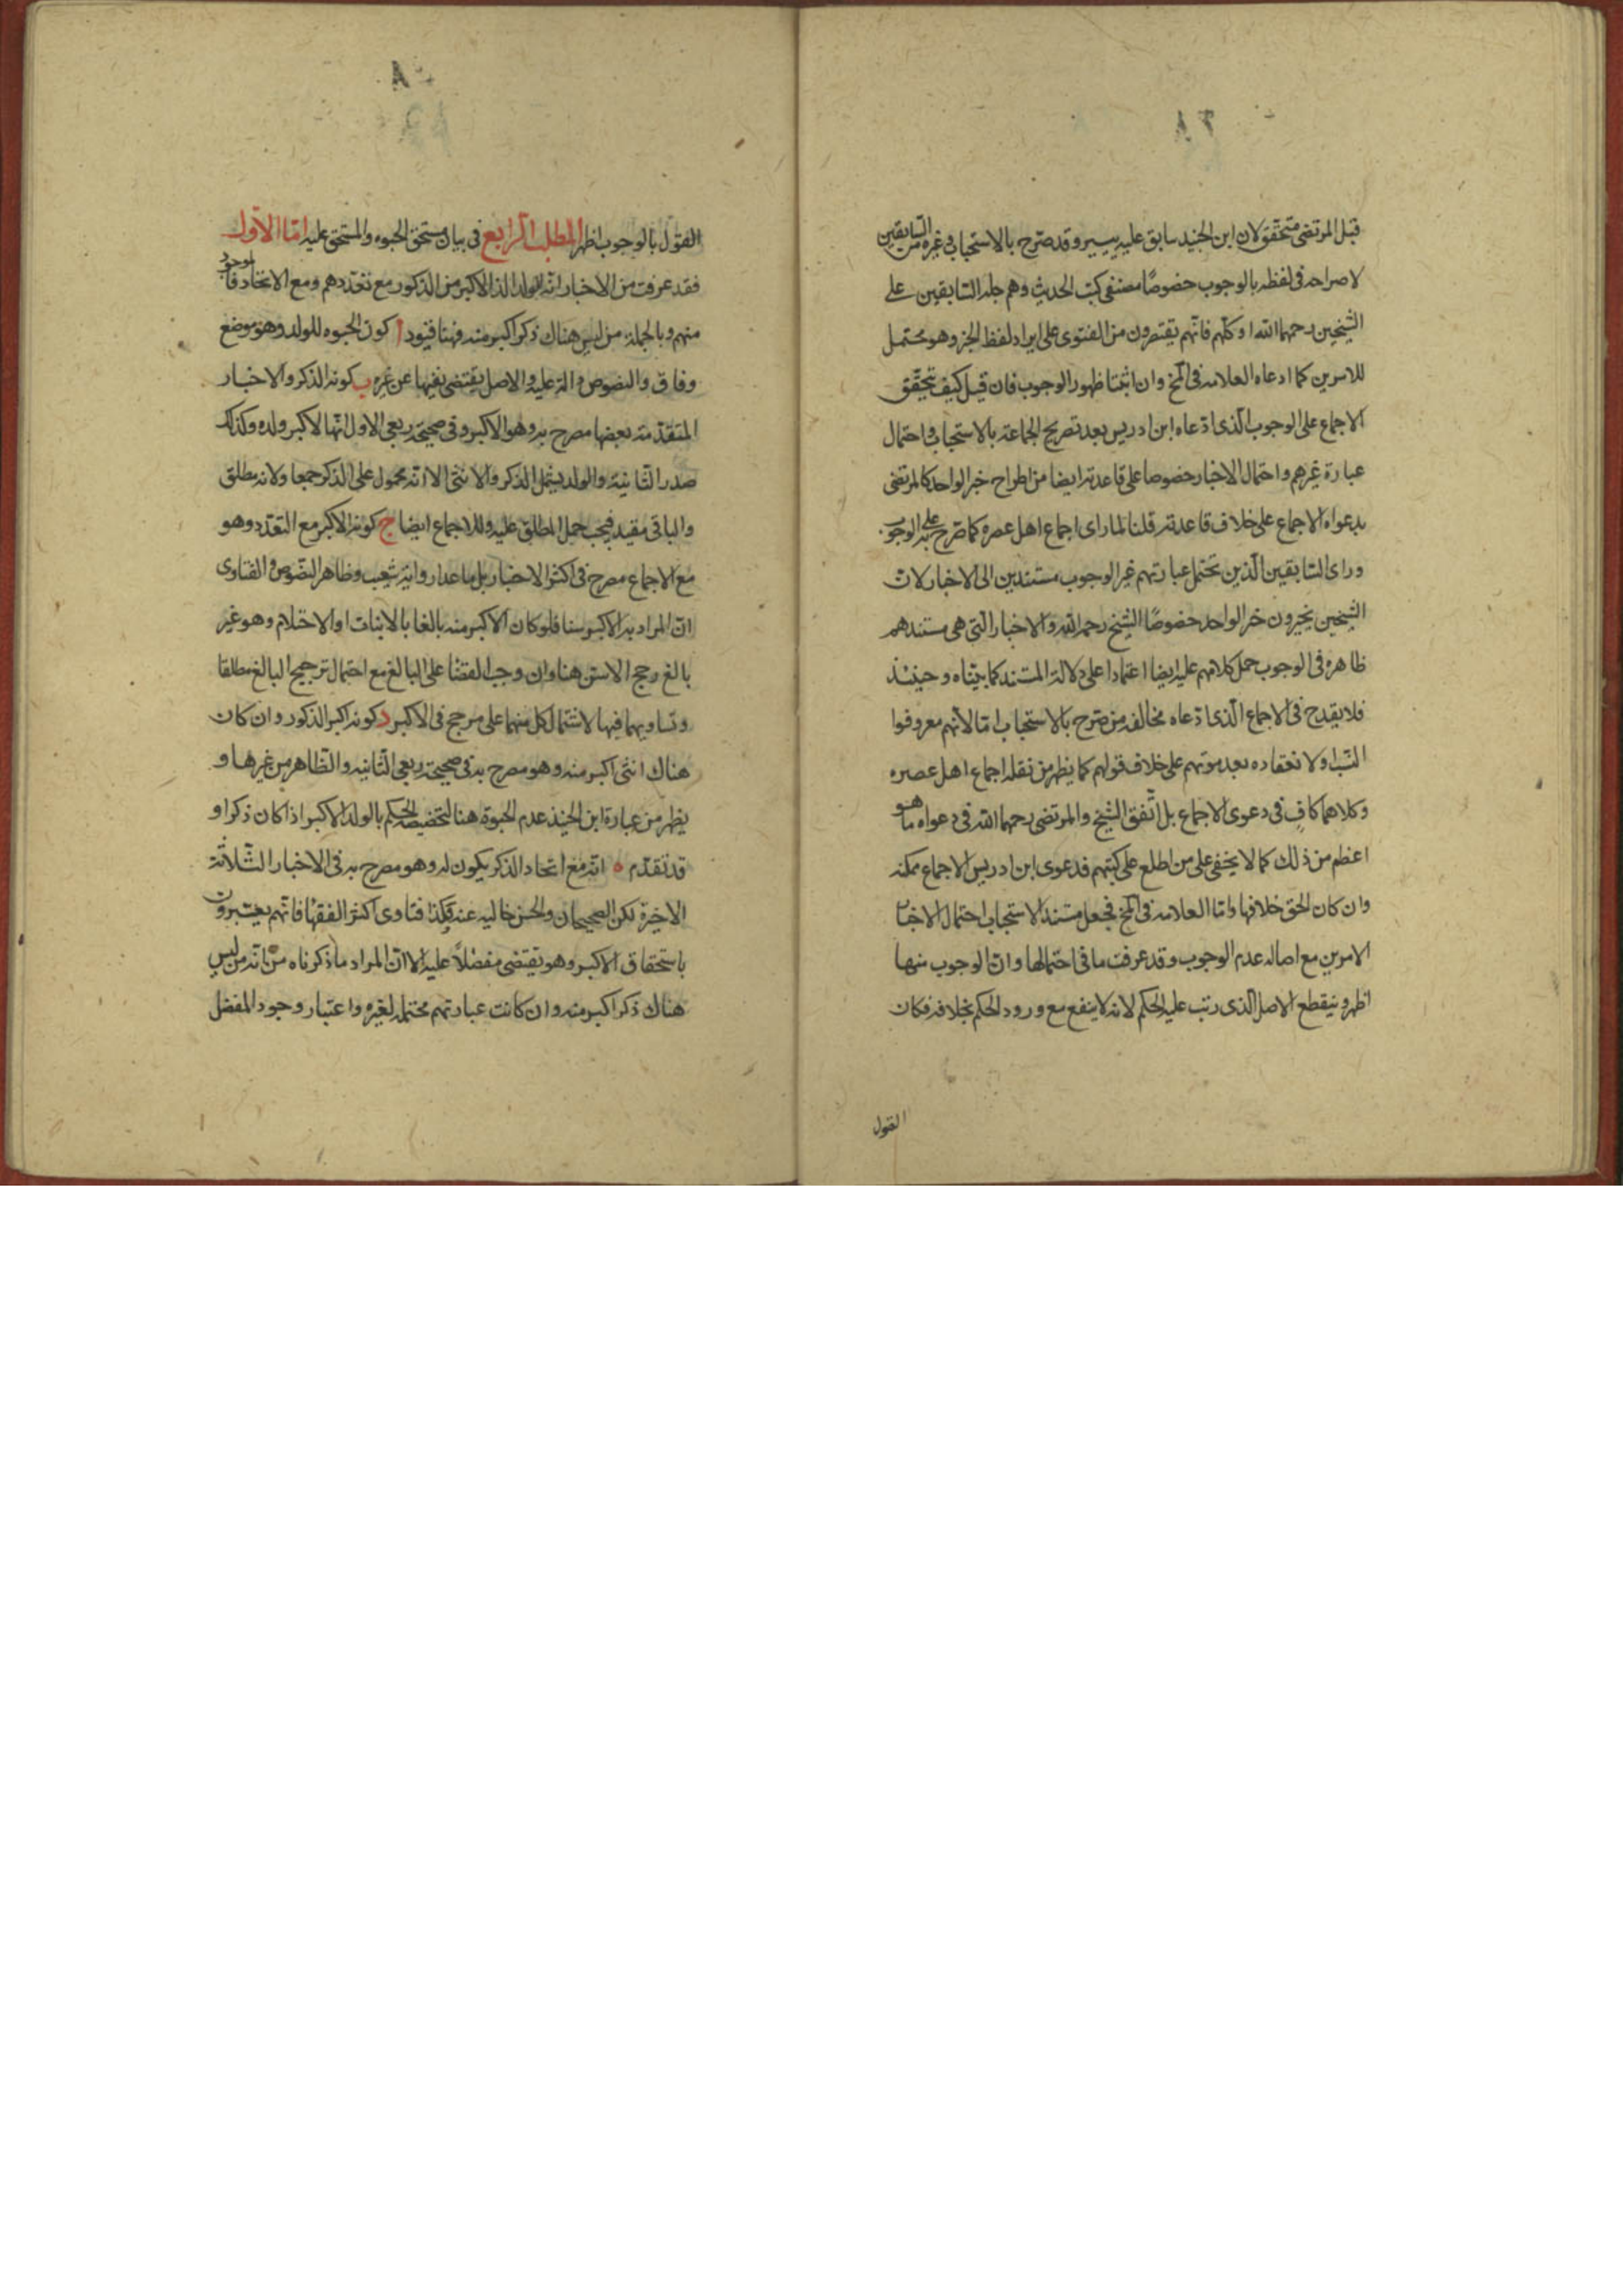 قبل المرتضى متحقق لان ابن الجنيد سابق عليه بيسير وقد صرح بالاستحباب وغيره من السابقين
لا صراحه فى لفظه بالوجوب خصوصًا مصنفى كتب الحديث وهم جله السابقين على
الشيخين رحمهما الله او كلهم فانهم يقتصرون من الفتوى على ايراد لفظ الخبر وهو محتمل
للامرين كما ادعاه العلامه فى لخ وان اثبتنا ظهور الوجوب فان قيل كيف تحقق
الاجماع على الوجوب الذى ادعاه ابن ادريس بعد تصريح الجماعة بالاستحباب واحتمال
عبارة غيرهم واحتمال الاخبار خصوصا على قاعدته ايضا من اطراح خبر الواحد كالمرتضى
بدعواه الاجماع على خلاف قاعدته قلنا لما راى اجماع اهل عصره كما صرح به على الوجوب
وراى السابقين الذين تحتمل عبارتهم غير الوجوب مستندين الى الاخبار لان
الشيخين يخيرون خبر الواحد خصوصًا الشيخ رحمه الله والاخبار التى هى مستندهم
ظاهره فى الوجوب حمل كلامهم عليه ايضا اعتمادا على دلالة المستند كما بيناه وحينئذ
فلا يقدح فى الاجماع الذى ادعاه مخالفه من صرح بالاستحباب اما لانهم معروفوا
النسب او لانعقاده بعد موتهم على خلاف قولهم كما يظهر من نقله اجماع اهل عصره
وكلاهما كافٍ فى دعوى الاجماع بل اتفق الشيخ والمرتضى رحمهما الله فى دعواه ما هو
اعظم من ذلك كما لا يخفى على من اطلع على كتبهم فدعوى ابن ادريس الاجماع ممكنه
وان كان الحق خلافها واما العلامه فى لخ فجعل مستند الاستحباب احتمال الاخبار
الامرين مع اصاله عدم الوجوب وقد عرفت ما فى احتمالها وان الوجوب منها
اظهر وينقطع الاصل الذى رتب عليه الحكم لانه لا ينفع مع ورود الحكم بخلافه فكان
القول
القول بالوجوب اظهر المطلب الرابع فى بيان مستحق الحبوه والمستحق عليه اما الاول
فقد عرفت من الاخبار انه الولد الذكر الاكبر من الذكور مع تعددهم ومع الاتحاد فالموجود
منهم وبالجملة من ليس هناك ذكر اكبر منه فهنا قيود ا كون الحبوه للولد وهو موضع
وفاق والنصوص دالة عليه والاصل يقتضى نفيها عن غيره ب كونه الذكر والاخبار
المتقدمة بعضها مصرح به وهو الاكبر وفى صحيحة ربعى الاول انها لاكبر ولده وكذلك
صدر الثانية والولد يشمل الذكر والانثى الا انه محمول على الذكر جمعا ولانه مطلق
والباقى مقيد فيجب حمل المطلق عليه وللاجماع ايضا ج كونه الاكبر مع التعدد وهو
مع الاجماع مصرح فى اكثر الاخبار بل ما عدا رواية شعيب وظاهر النصوص والفتاوى
ان المراد به الاكبر سنا فلو كان الاكبر منه بالغا بالانبات او الاحتلام وهو غير
بالغ رجح الاسن هنا وان وجب القضا على البالغ مع احتمال ترجيح البالغ مطلقا
وتساويهما فيها لاشتمال كل منهما على مرجح فى الاكبر د كونه اكبر الذكور وان كان
هناك انثى اكبر منه وهو مصرح به فى صحيحة ربعى الثانيه والظاهر من غيرها و
يظهر من عبارة ابن الجنيد عدم الحبوة هنا لتخصيصه الحكم بالولد الاكبر اذا كان ذكرا و
قد تقدم ه انه مع اتحاد الذكر يكون له وهو مصرح به فى الاخبار الثلاثة
الاخيرة لكن الصحيحان والحسن خاليه عنه وكذا فتاوى اكثر الفقها فانهم يعتبرون
باستحقاق الاكبر وهو يقتضى مفضلاً عليه الا ان المراد ما ذكرناه من انه من ليس
هناك ذكر اكبر منه وان كانت عبارتهم محتمله لغيره واعتبار وجود المفضل